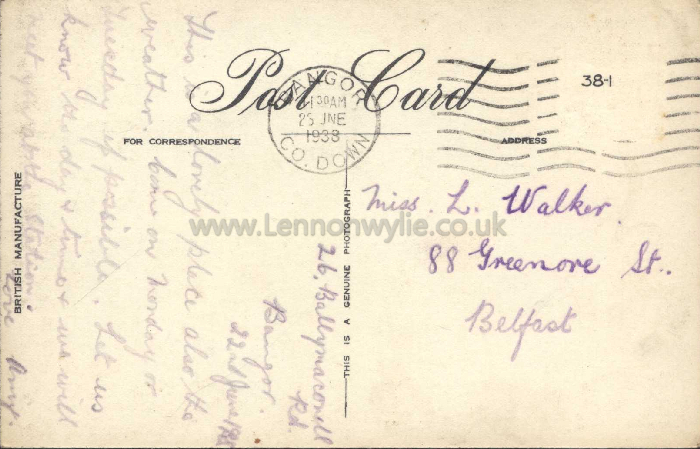 Post Card
FOR CORRESPONDENCE
ADDRESS
BANGOR
30AM
25 JNE
1938
CO. DOWN
38-1
BRITISH MANUFACTURE
THIS IS A GENUINE PHOTOGRAPH
26, Ballymaconnell
Rd.
Bangor.
22nd June
This is a lovely place also the
weather. Come on Monday or
Tuesday if possible. Let us
know the day & time & we will
meet you at the station.
Love Amy.
Miss. L. Walker.
88 Greenore St.
Belfast
www.Lennonwylie.co.uk